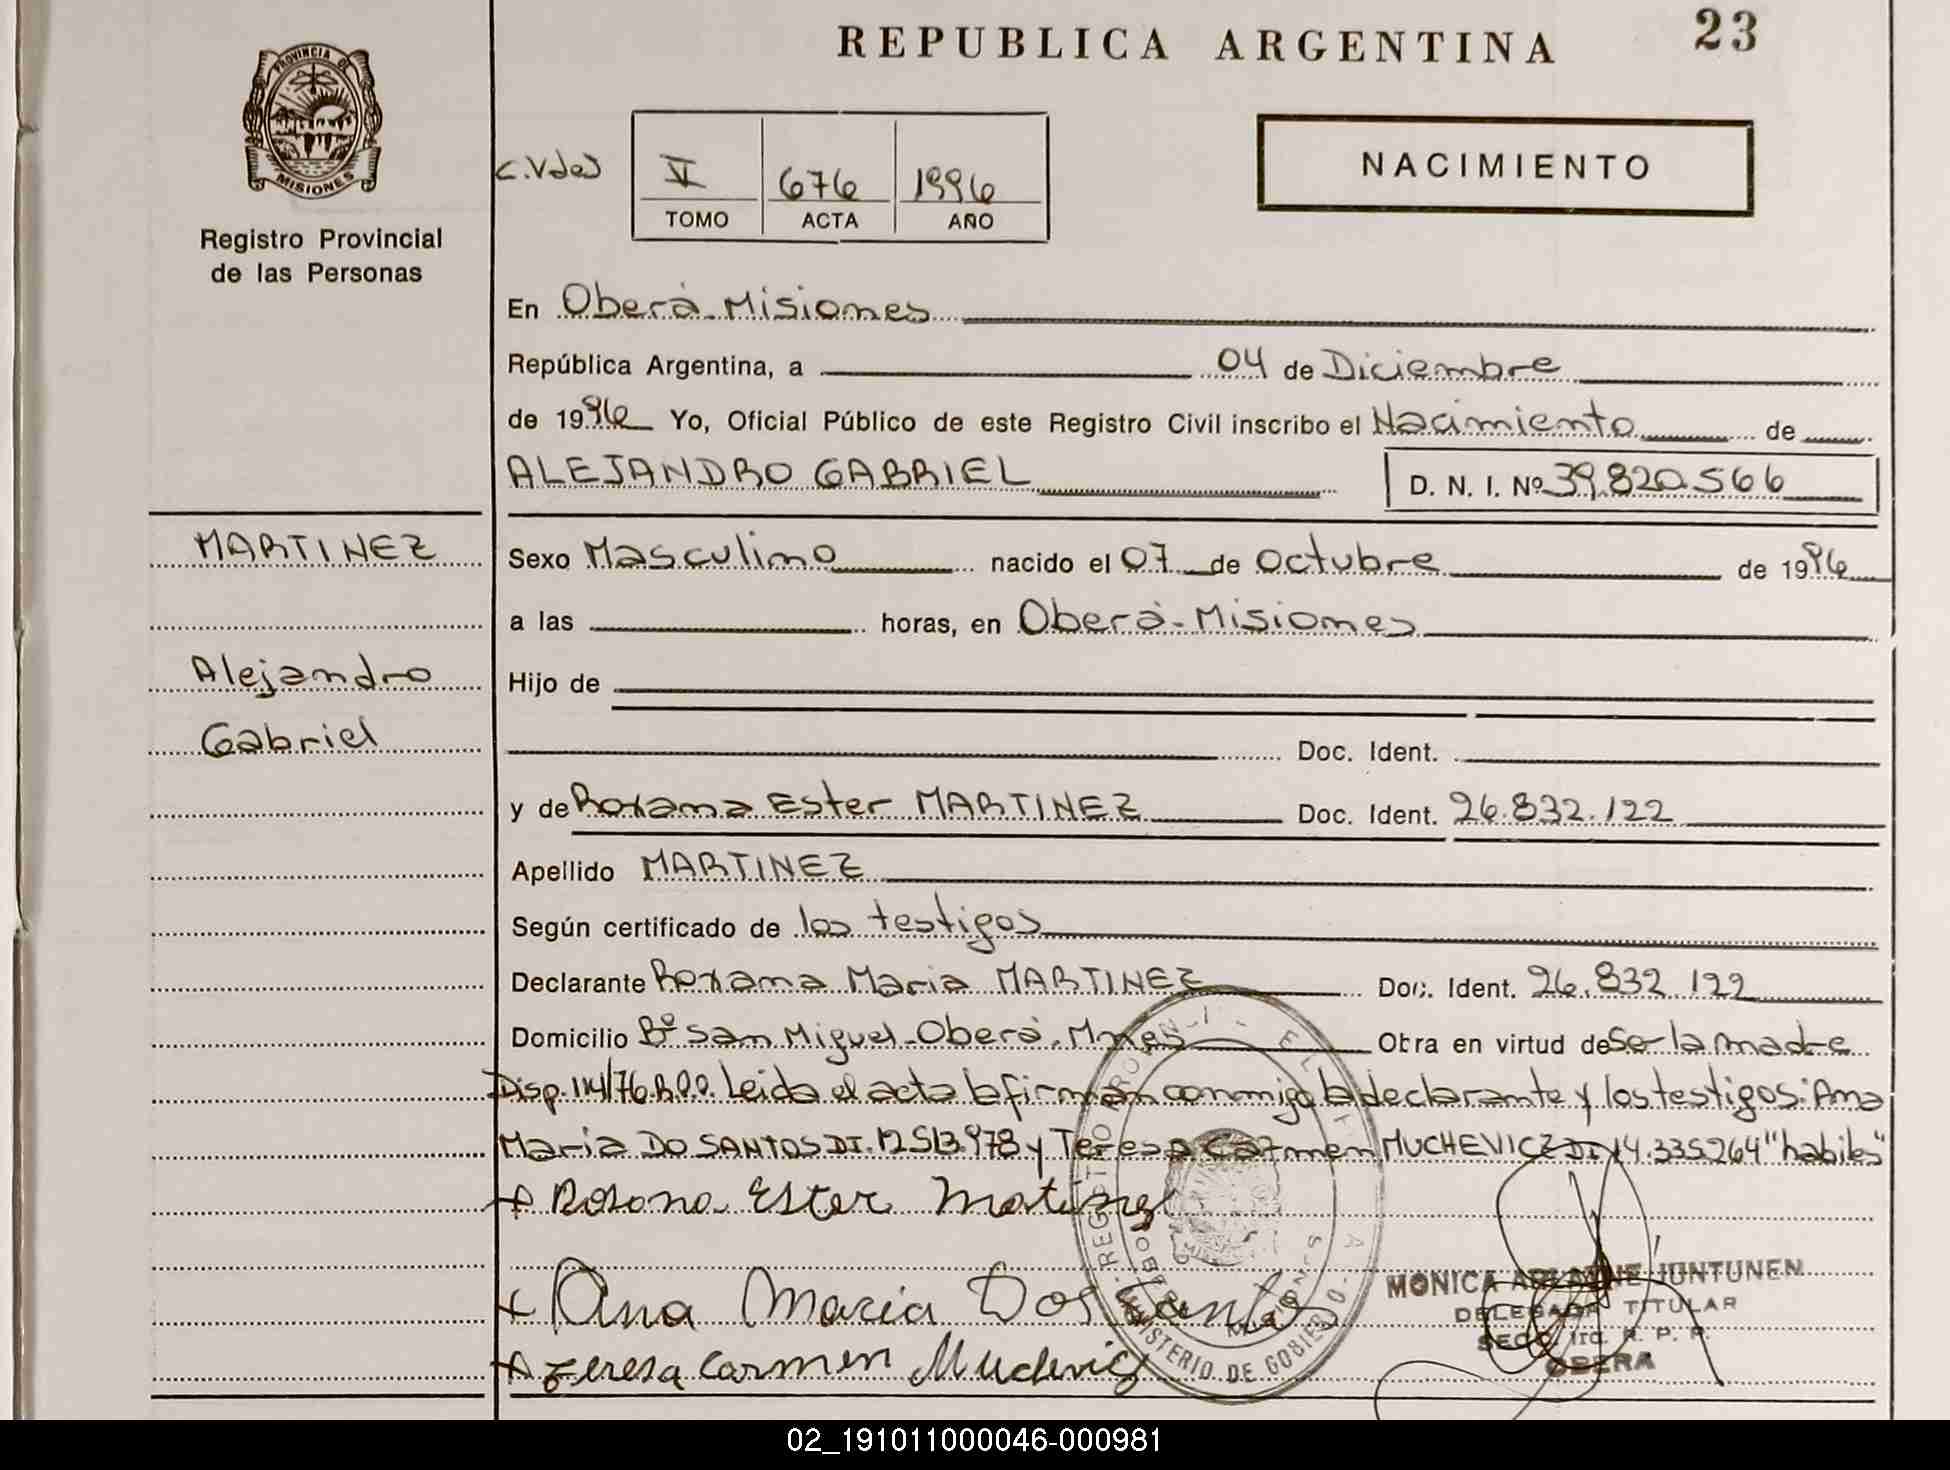 REPUBLICA ARGENTINA 23
PROVINCIA DE
MISIONES
Registro Provincial
de las Personas
NACIMIENTO
V 676 1996
TOMO ACTA AÑO
En Oberá-Misiones
República Argentina, a 04 de Diciembre
de 1996 Yo, Oficial Público de este Registro Civil inscribo el Nacimiento de
ALEJANDRO GABRIEL D. N. I. Nº 39.820.566
MARTINEZ
Alejandro
Gabriel
Sexo Masculino nacido el 07 de Octubre de 1996
a las horas, en Oberá-Misiones
Hijo de
Doc. Ident.
y de Roxana Ester MARTINEZ Doc. Ident. 26.832.122
Apellido MARTINEZ
Según certificado de los testigos
Declarante Roxana Maria MARTINEZ Doc. Ident. 26.832.122
Domicilio Bº San Miguel-Oberá-Mnes Obra en virtud de Ser la madre
Disp. 114/76.R.P.P. Leida el acta la firman conmigo la declarante y los testigos: Ana
Maria DO SANTOS DI. 12.513.978 y Teresa Carmen MUCHEVICZ DI 14.335264 "habiles"
+ Rosana Ester Martinez
+ Ana Maria Dos Santos
+ Teresa Carmen Muchevicz
MINISTERIO DE GOBIERNO
MONICA JUNTUNEN
DELEGADA TITULAR
R. P. P.
OBERA
02_191011000046-000981